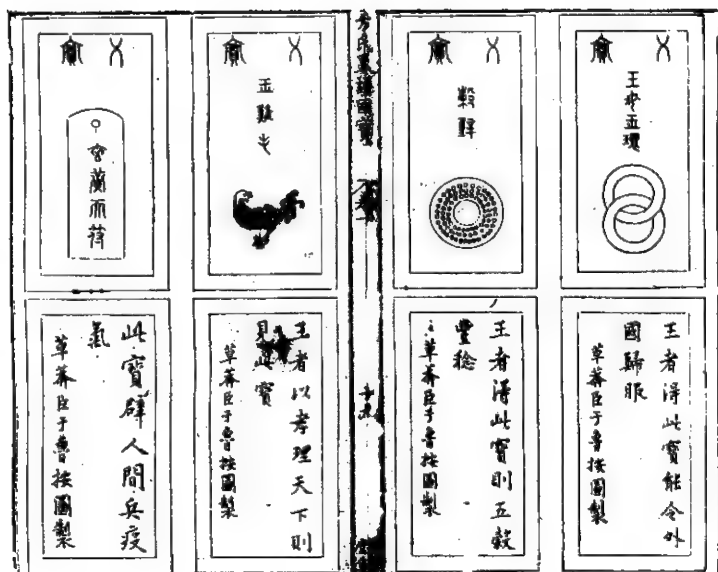 八寶
王母玉環
王者得此寶能令外
國歸服
草莽臣于魯按圖製
八寶
穀璧
王者得此寶則五穀
豐稔
草莽臣于魯按圖製
方氏墨譜國寶
八寶
玉雞毛
王者以孝理天下則
見此寶
草莽臣于魯按圖製
八寶
玄黃天符
此寶辟人間兵疫
氣
草莽臣于魯按圖製